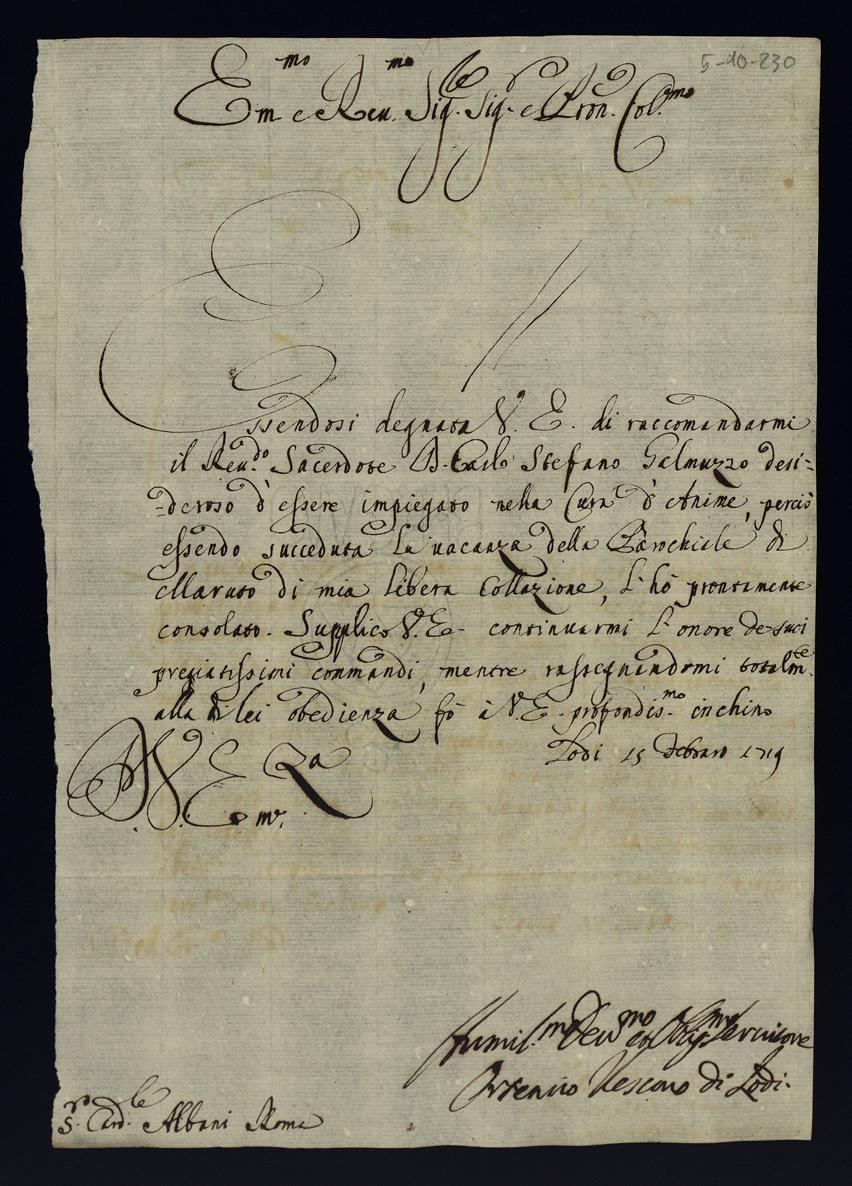 5-10-230
Em.mo e Reu.mo Sig.le Sig.r e Pron. Col.mo
Essendosi degnata V. E. di raccomandarmi
il Reu.do Sacerdote D. Carlo Stefano Galmuzzo desi=
=deroso d'essere impiegato nella Cura d'Anime, perciò
essendo succeduta la uacanza della Parochiale di
Maruto di mia libera Collazione, l'hò prontamente
consolato. Supplico V. E. continuarmi l'onore de suoi
pregiatissimi commandi, mentre rassegnandomi totalm.te
alla di lei obedienza fò à V. E. profondis.mo inchino
Lodi 15 Febraro 1719
D. V. E. Za
Em.
Humil.mo Deu.mo et Oblig.mo Seruitore
Ortensio Vescouo di Lodi.
S.r Card.le Albani Roma